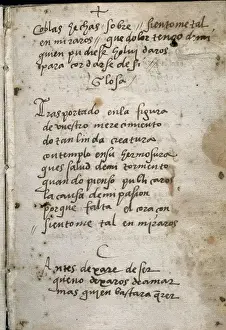 Coblas hechas sobre // sientome tal
en miraros // que dolor tengo de mi
quien pudiese holvi daros
para cordarse de si
Glosa
Trasportado enla figura
de vuestro merecimiento
do tan linda creatura
contemplo ensu hermosura
ques salud demi tormento
quando pienso publicaros
la causa demi pasion
porque falta el coraçon
sientome tal en miraros
C
Antes dexare de ser
queno dexaros deamar
mas quien bastara